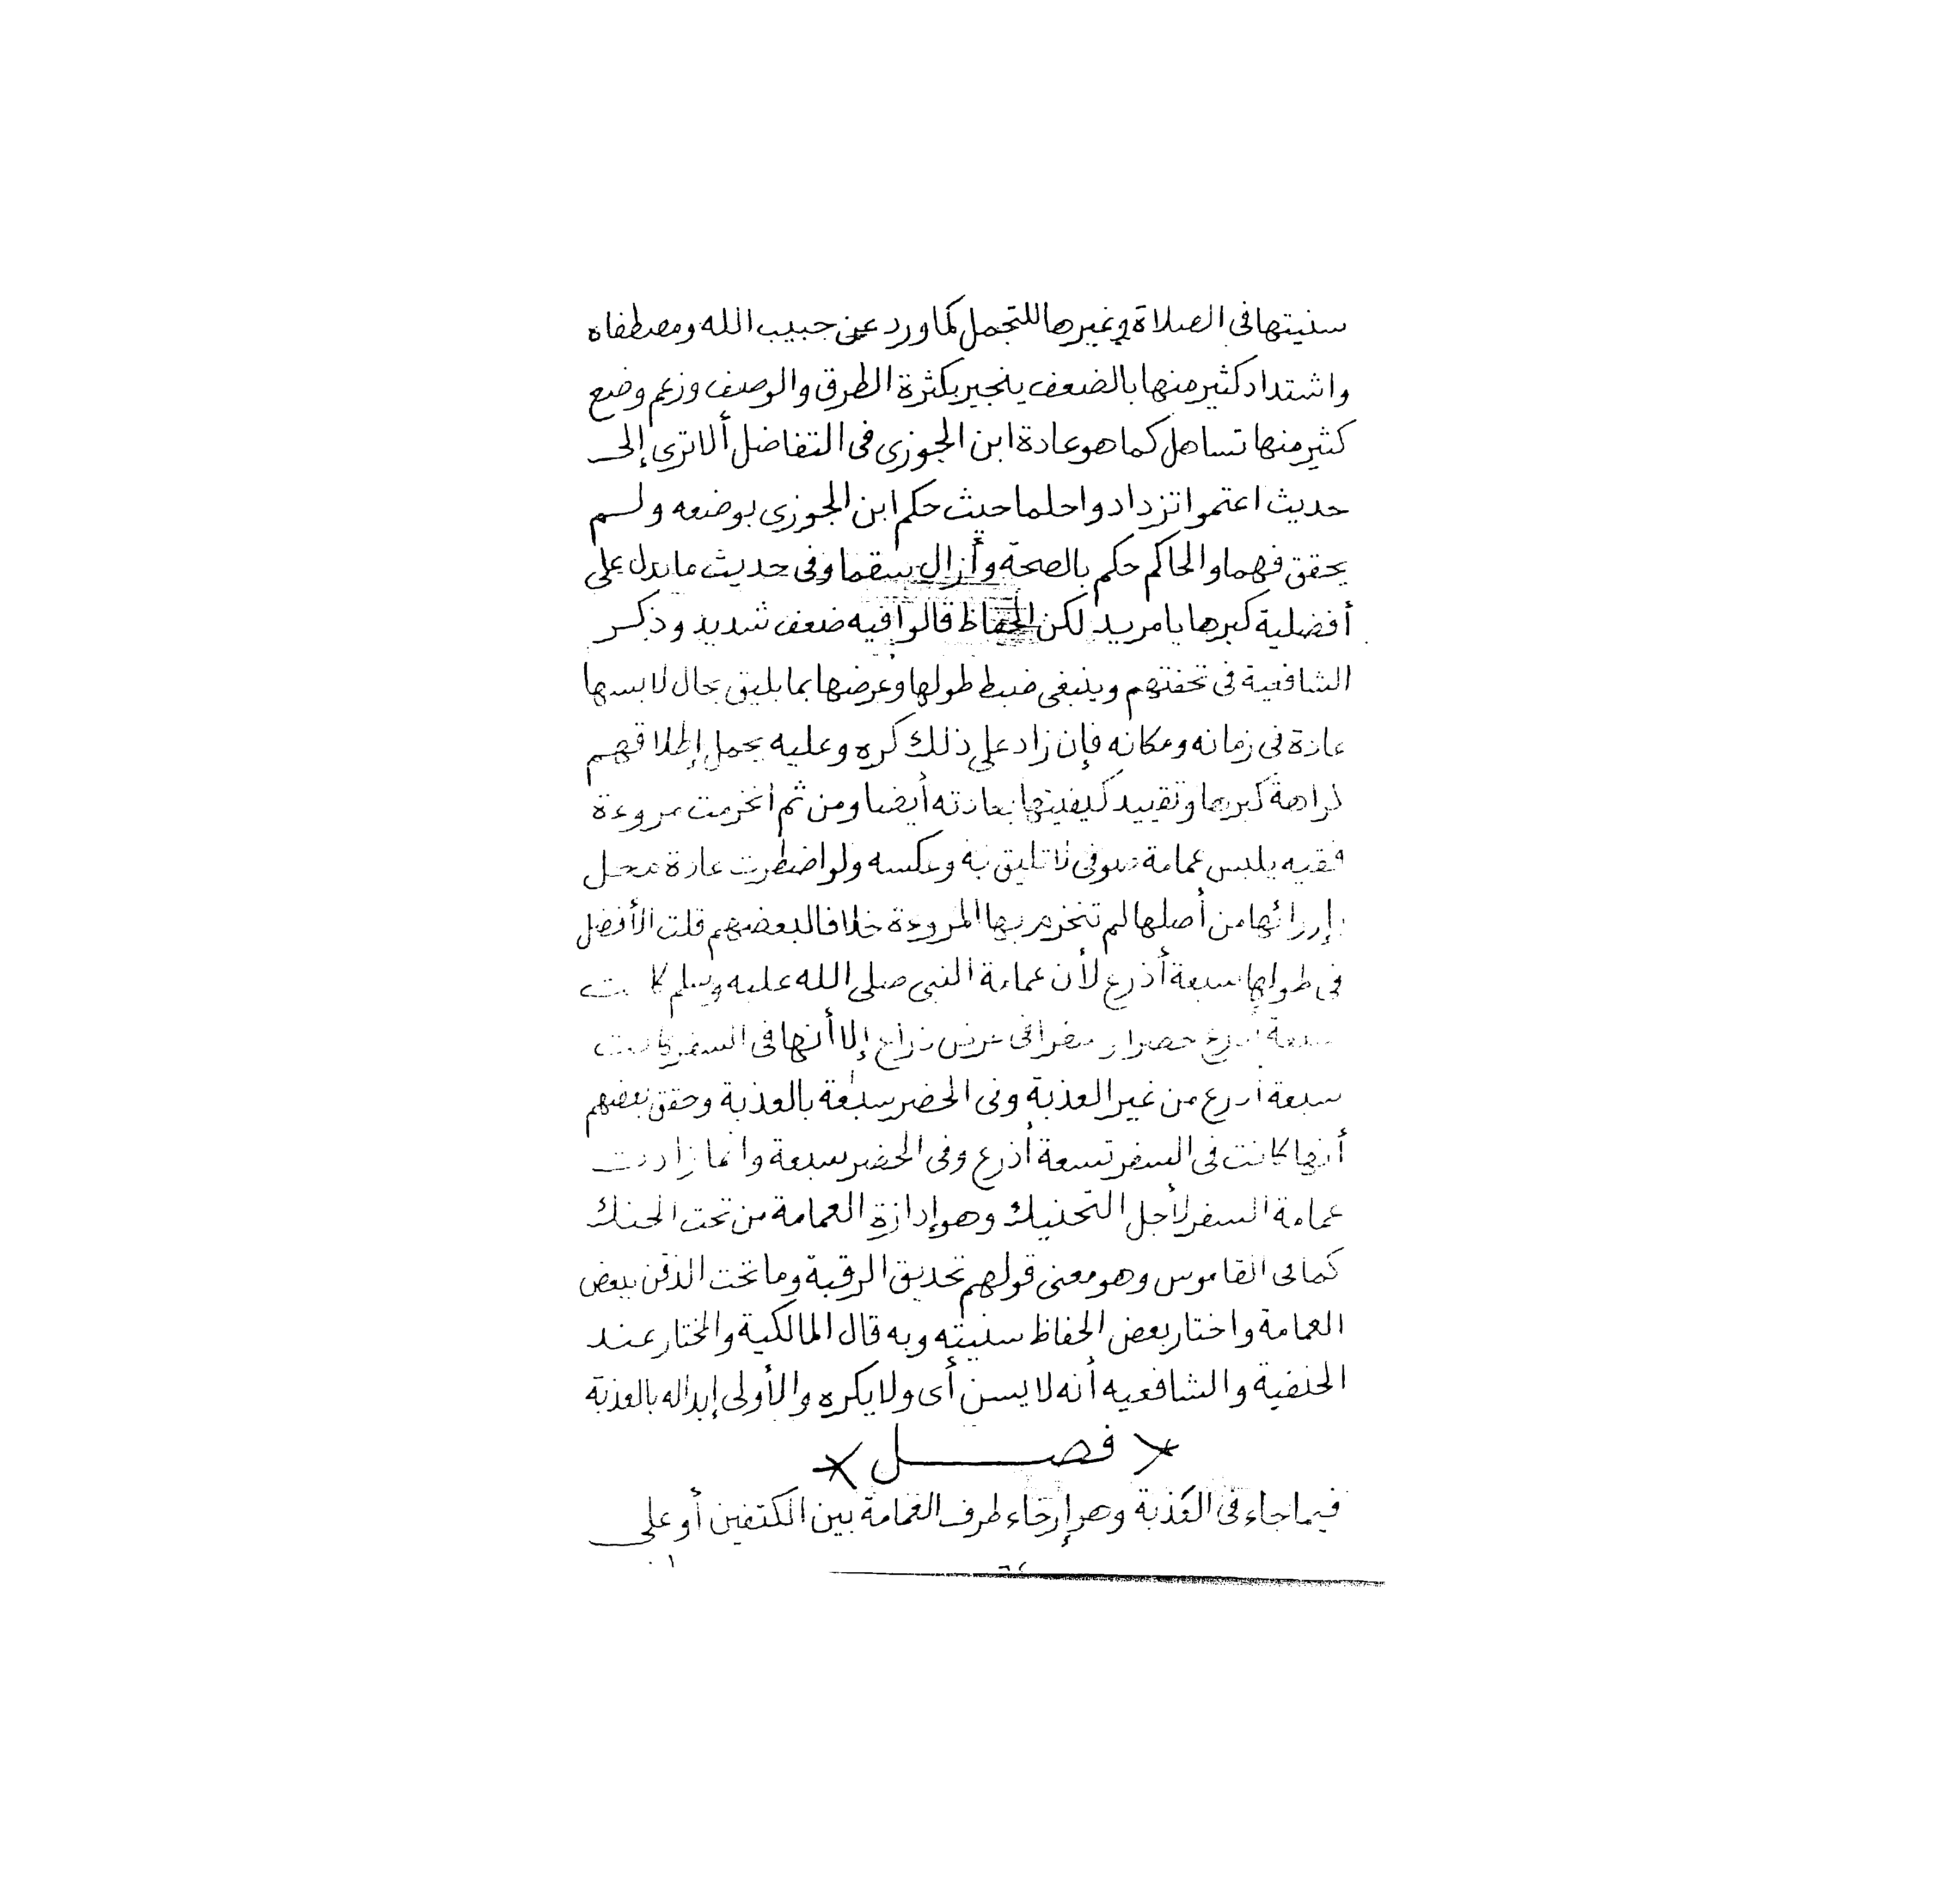 سنيتها فى الصلاة وغيرها للتجمل كما ورد عن حبيب الله ومصطفاه
واشتداد كثير منها بالضعف ينجبر بكثرة الطرق والوصف وزعم وضع
كثير منها تساهل كما هو عادة ابن الجوزى فى التفاضل ألا ترى إلى
حديث اعتموا تزدادوا حلما حيث حكم ابن الجوزى بوضعه ولم
يحقق فهما والحاكم حكم بالصحة وأزال سقما وفى حديث ما يدل على
أفضلية كبرها يا مريد لكن الحفاظ قالوا فيه ضعف شديد وذكر
الشافعية فى تحفتهم وينبغى ضبط طولها وعرضها بما يليق بحال لابسها
عادة فى زمانه ومكانه فإن زاد على ذلك كره وعليه يحمل إطلاقهم
كراهة كبرها وتقييد كيفيتها بعادته أيضا ومن ثم انخرمت مروءة
فقيه يلبس عمامة صوفى لا تليق به وعكسه ولو اضطرت عادة محل
من أصلها لم تنخرم بها المروءة خلافا لبعضهم قلت الأفضل
فى طولها سبعة أذرع لأن عمامة النبى صلى الله عليه وسلم كانت
سبعة أذرع حضرا و سفرا فى عرض ذراع إلا أنها فى السفر كانت
سبعة أذرع من غير العذبة وفى الحضر سبعة بالعذبة وحقق بعضهم
أنها كانت فى السفر تسعة أذرع وفى الحضر سبعة وانما زادت
عمامة السفر لأجل التحنيك وهو إدارة العمامة من تحت الحنك
كما فى القاموس وهو معنى قولهم تحديق الرقبة وما تحت الذقن ببعض
العمامة واختار بعض الحفاظ سنيته وبه قال المالكية والمختار عند
الحنفية والشافعيه أنه لا يسن أى ولا يكره والأولى إبداله بالعذبة
فصــــل
فيما جاء فى العَذبة وهو إرخاء طرف العمامة بين الكتفين أو على